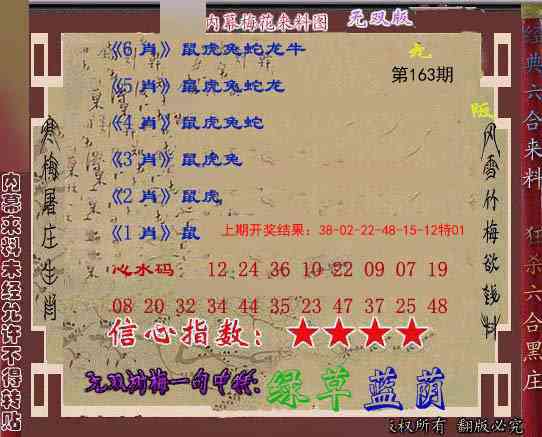 内幕梅花来料图 无双版
《6 肖》鼠虎兔蛇龙牛
《5 肖》鼠虎兔蛇龙
《4 肖》鼠虎兔蛇
《3 肖》鼠虎兔
《2 肖》鼠虎
《1 肖》鼠
上期开奖结果：38-02-22-48-15-12特01
第163期
心水码： 12 24 36 10 22 09 07 19
08 20 32 34 44 35 23 47 37 25 48
信心指数：★★★★
无双 梅一句中特：绿草蓝荫
寒梅屠庄生肖
内幕来料未经允许不得转贴
风雪竹梅欲钱料
经典六合来料
狂杀六合黑庄
权所有 翻版必究